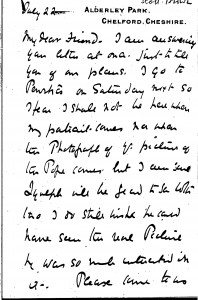 July 22
ALDERLEY PARK,
CHELFORD, CHESHIRE.
My dear Friend. I am answering
your letter at once. just to tell
you of our plans. I go to
on Saturday next so
I fear I shall not be here when
my comes nor when
the Photograph of yr. picture of
the Pope comes. but I am sure
will be to see both
too. I do still wish he could
have seen the real Picture
he was so much interested in
it -. Please come to us